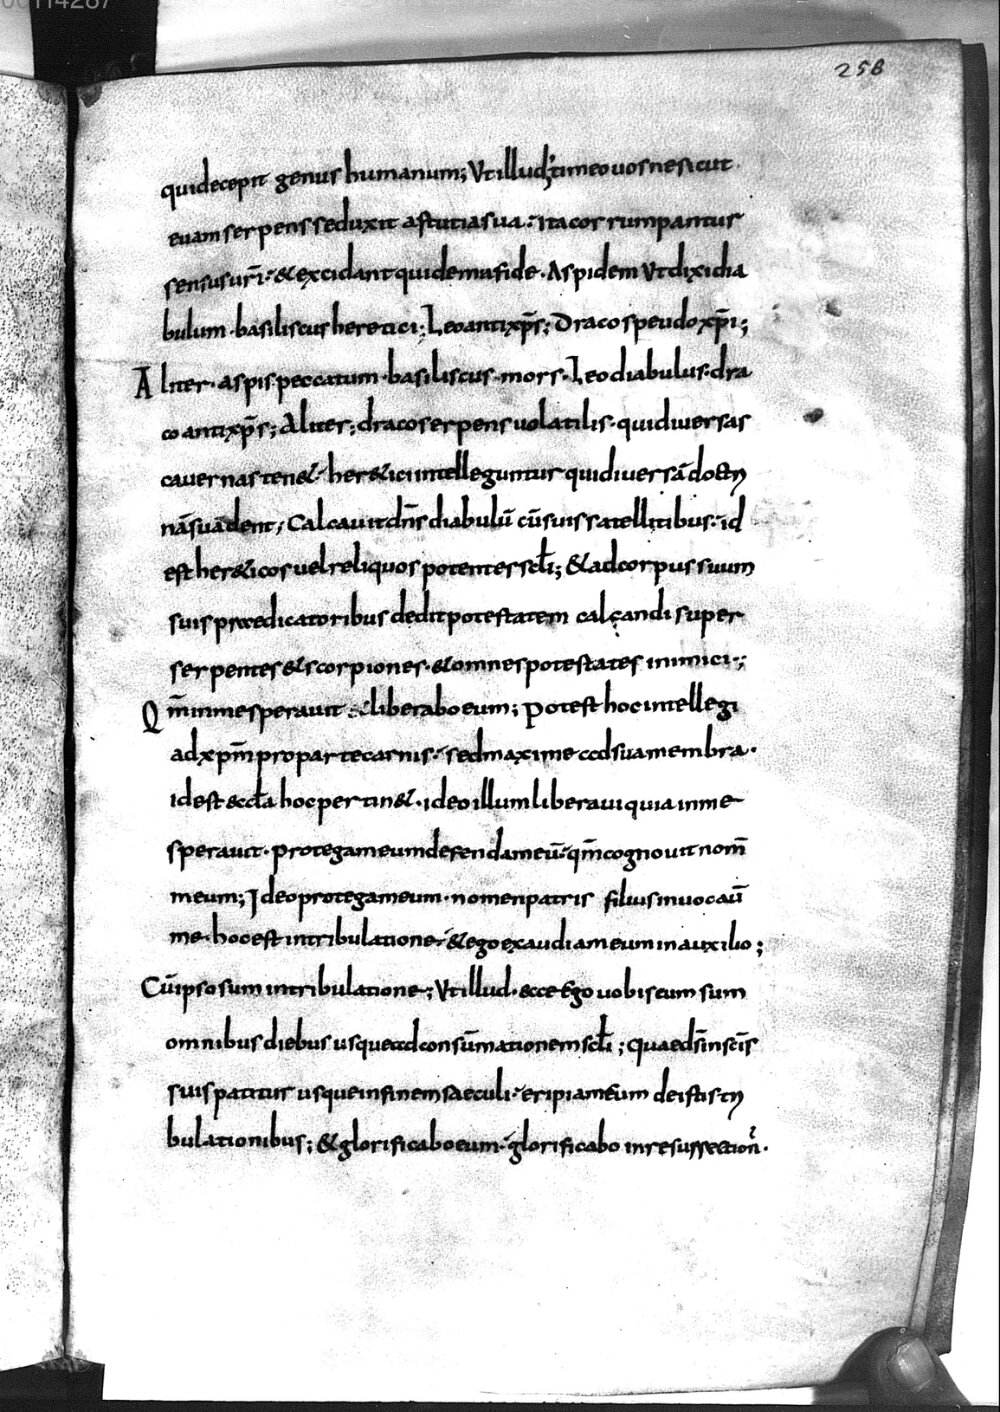 00114287
258
qui decepit genus humanum; Ut illud; timeo uos ne sicut
euam serpens seduxit astutia sua; ita corrumpantur
sensus ur̄i; & excidant quidem a fide. Aspidem ut dixi dia
bulum. basiliscus heretici; Leo antixp̄s; Draco speudoxp̄i;
Aliter. aspis peccatum. basiliscus. mors. Leo diabulus. dra
co antixp̄s; Aliter; draco serpens uolatilis. qui diuersas
cauernas ten&; her&ici intelleguntur qui diuersā doctri
nā suadent; Calcauit dn̄s diabulū cū suis satellitibus; id
est her&icos uel reliquos potentes sc̄li; & ad corpus suum
suis praedicatoribus dedit potestatem calcandi super
serpentes & scorpiones. & omnes potestates inimici;
Qm̄ in me sperauit; liberabo eum; Potest hoc intellegi
ad xpm̄ pro parte carnis; sed maxime ad sua membra.
id est eccl̄a hoc pertin&. ideo illum liberaui quia in me
sperauit. protegam eum defendam eū; qm̄ cognouit nom̄
meum; Ideo protegam eum. nomen patris filius inuocauī
me. hoc est in tribulatione; & ego exaudiam eum in auxilio;
Cū ipso sum in tribulatione; Ut illud. ecce ego uobiscum sum
omnibus diebus usque ad consūmationem sc̄li; quae ds̄ in sc̄is
suis patitur usque in finem saeculi; eripiam eum de istis tri
bulationibus; & glorificabo eum; glorificabo in resurrection̄.